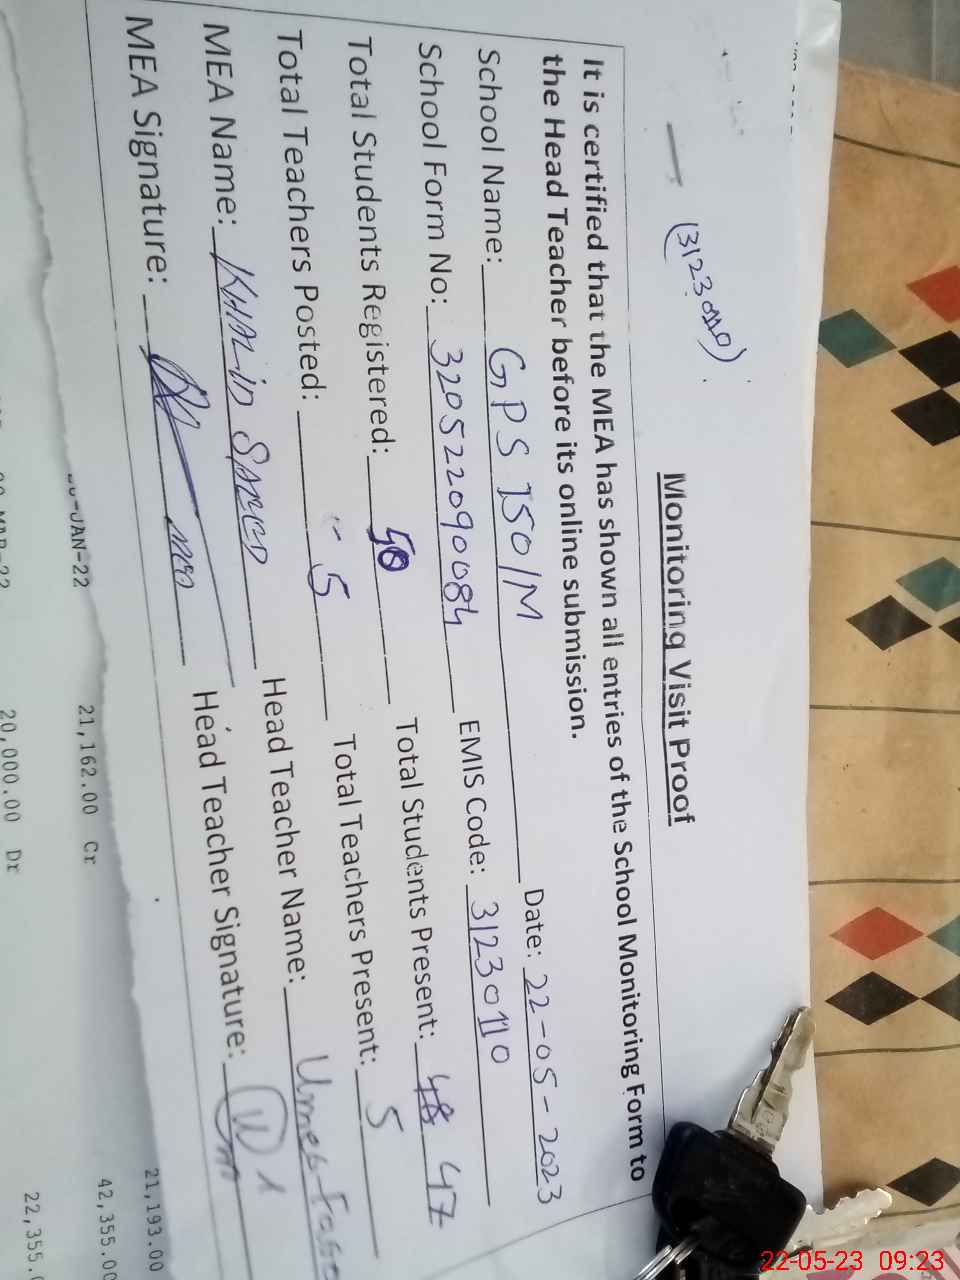 Monitoring Visit Proof
It is certified that the MEA has shown all entries of the School Monitoring Form to
the Head Teacher before its online submission.
School Name: GPS 150/M Date: 22-05-2023
School Form No: 320522090084 EMIS Code: 31230110
Total Students Registered: 50 Total Students Present: 48 47
Total Teachers Posted: 5 Total Teachers Present: 5
MEA Name: KHALID SAEED Head Teacher Name:
MEA Signature: Head Teacher Signature:
-JAN-22 21,162.00 Cr 21,193.00
20,000.00 Dr 42,355.00
22,355.
22-05-23 09:23